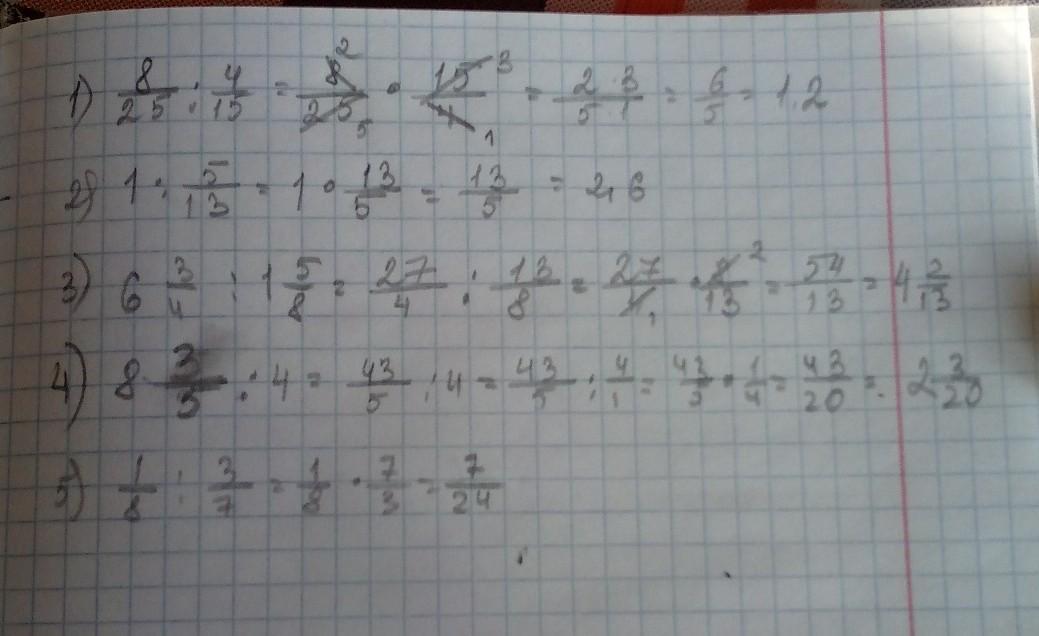 1) 8/25 : 4/15 = 8 2/25 5 · 15 3/4 1 = 2·3/5·1 = 6/5 = 1.2
2) 1 : 5/13 = 1 · 13/5 = 13/5 = 2,6
3) 6 3/4 : 1 5/8 = 27/4 : 13/8 = 27/4 1 · 8 2/13 = 54/13 = 4 2/13
4) 8 3/5 : 4 = 43/5 : 4 = 43/5 : 4/1 = 43/5 · 1/4 = 43/20 = 2 3/20
5) 1/8 : 3/7 = 1/8 · 7/3 = 7/24